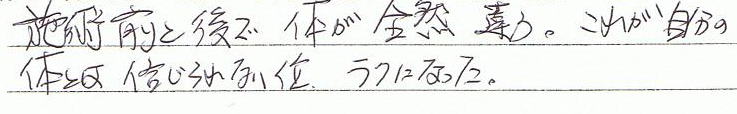 施術前と後で体が全然違う。これが自分の
体とは信じられない位、ラクになった。